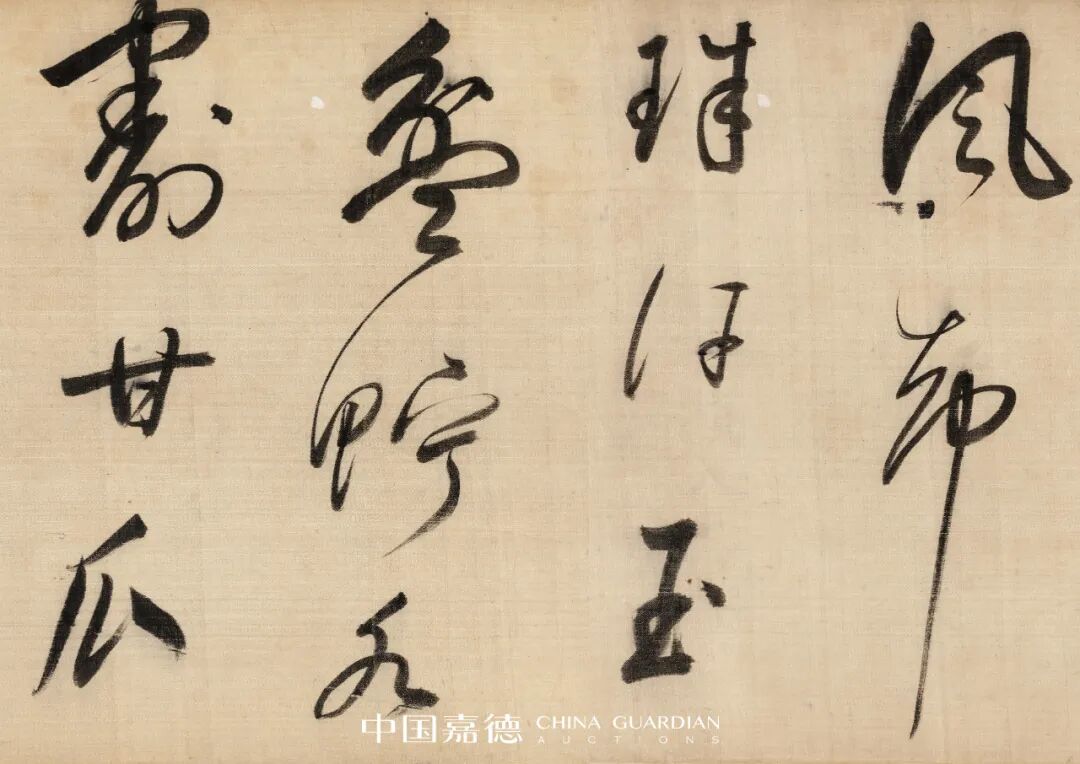 風却
珠汗玉
盤貯水
割甘瓜
中国嘉德 CHINA GUARDIAN
AUCTIONS